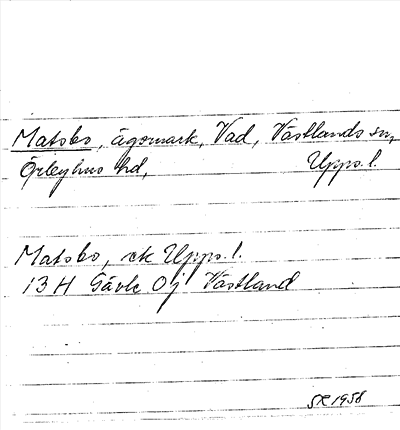 Matsbo, ägomark, Vad, Västlands sn,
Örbyhus hd, Upps. l.
Matsbo, ek Upps. l.
13 H Gävle Oj Västland
SR 1956